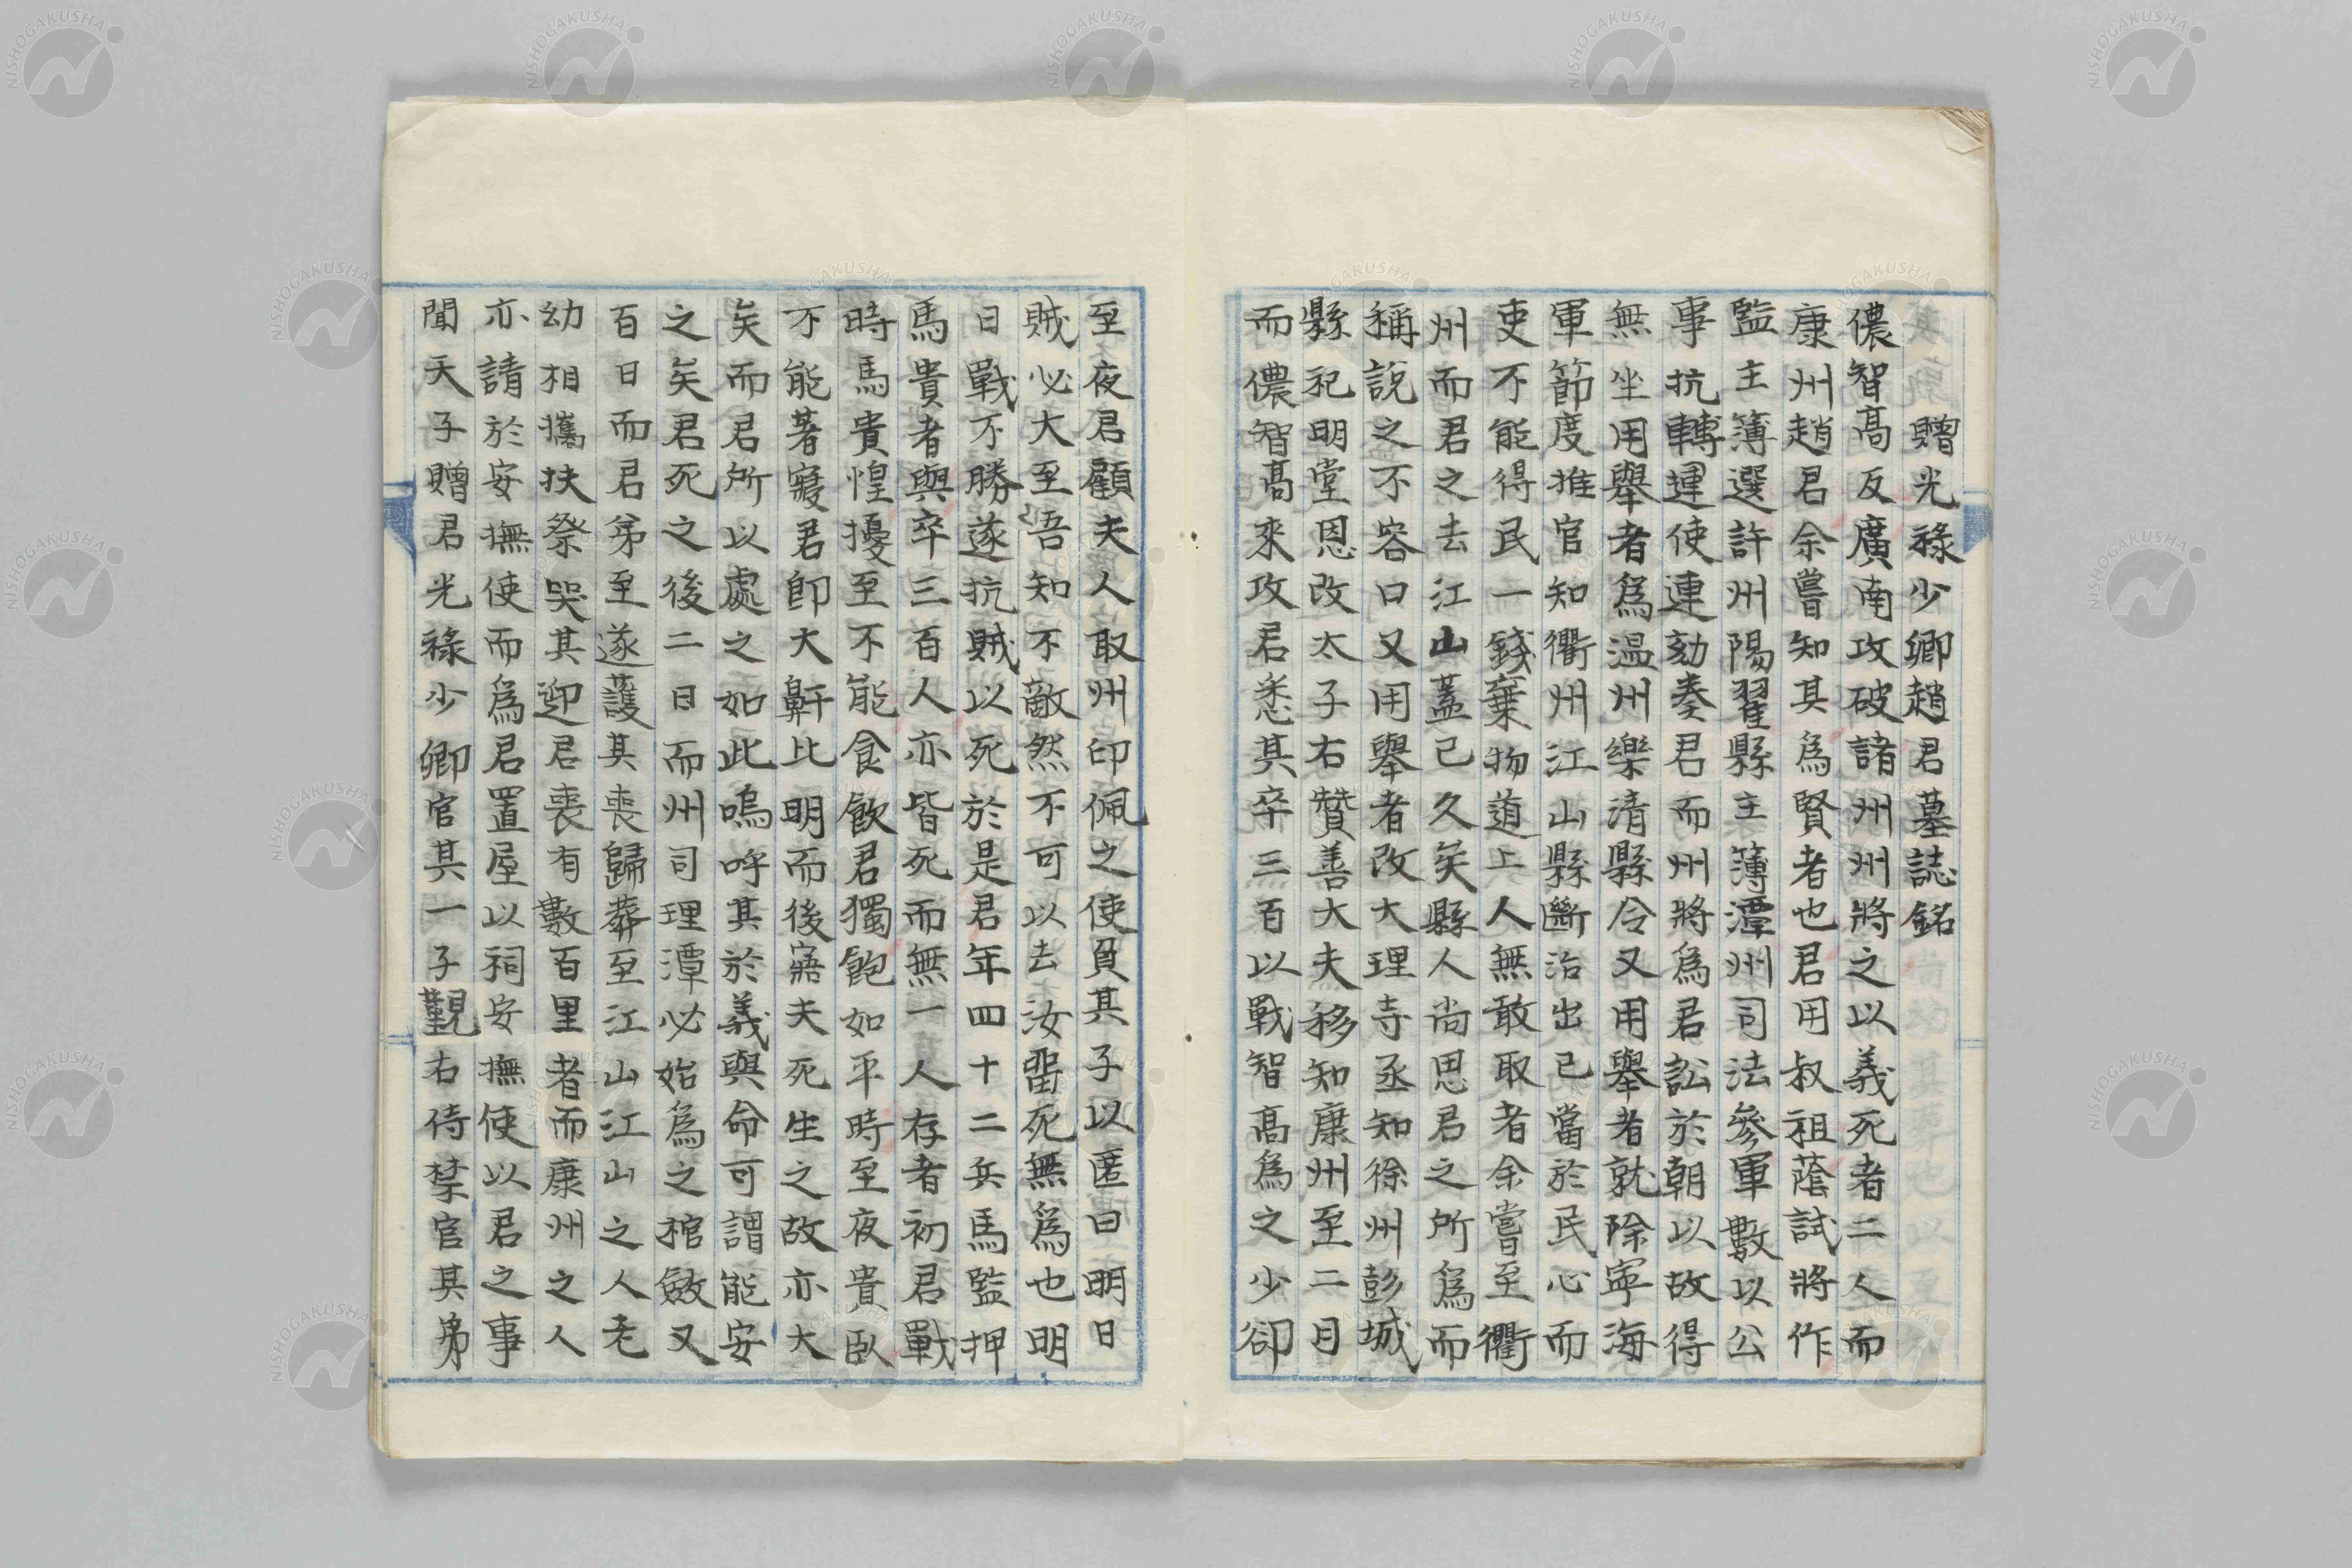 贈光祿少卿趙君墓誌銘
儂智高反廣南攻破諸州州將之以義死者二人而
康州趙君余嘗知其爲賢者也君用叔祖蔭試將作
監主簿選許州陽翟縣主簿潭州司法參軍數以公
事抗轉運使連劾奏君而州將爲君訟於朝以故得
無坐用舉者爲温州樂清縣令又用舉者就除寧海
軍節度推官知衢州江山縣斷治出已當於民心而
吏不能得民一錢棄物道上人無敢取者余嘗至衢
州而君之去江山蓋已久矣縣人尚思君之所爲而
稱說之不容口又用舉者改大理寺丞知徐州彭城
縣祀明堂恩改太子右贊善大夫移知康州至二月
而儂智高來攻君悉其卒三百以戰智高爲之少卻
至夜君顧夫人取州印佩之使負其子以匿曰明日
賊必大至吾知不敵然不可以去汝畱死無爲也明
日戰不勝遂抗賊以死於是君年四十二兵馬監押
馬貴者與卒三百人亦皆死而無一人存者初君戰
時馬貴惶擾至不能食飲君獨飽如平時至夜貴臥
不能著寢君卽大鼾比明而後寤夫死生之故亦大
矣而君所以處之如此嗚呼其於義與命可謂能安
之矣君死之後二日而州司理潭必始爲之棺斂又
百日而君弟至遂護其喪歸葬至江山江山之人老
幼相攜扶祭哭其迎君喪有數百里者而康州之人
亦請於安撫使而爲君置屋以祠安撫使以君之事
聞天子贈君光祿少卿官其一子覲右侍禁官其弟
NISHOGAKUSHA